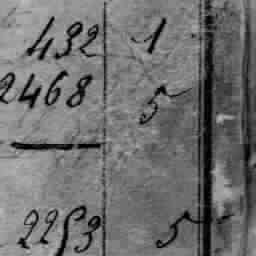 432 1
2468 5
2253 5